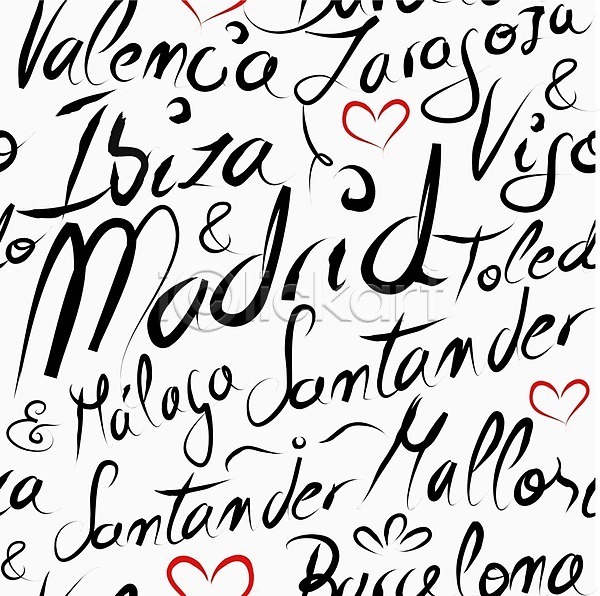 Valencia Zaragoza
&
Ibiza Vigo
& Madrid Toled
iclickart
& Málaga Santander
Santander Mallor
& Barcelona